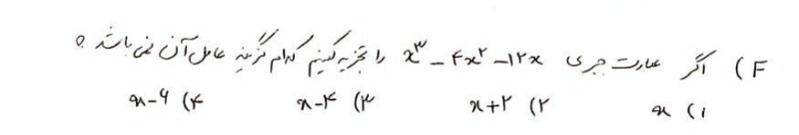 ۴) اگر عبارت جبری x³ - ۴x² - ۱۲x را تجزیه کنیم کدام گزینه عامل آن نمی باشد؟
۱) x ۲) x+۲ ۳) x-۴ ۴) x-۶